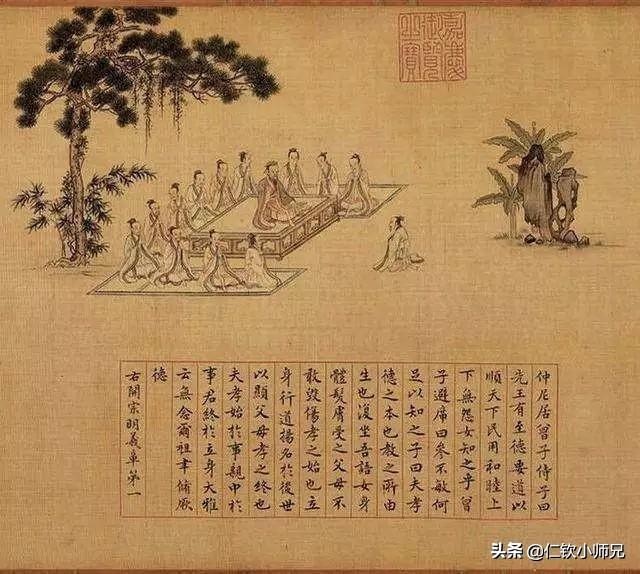 嘉慶
御覽
之寶
仲尼居曾子侍子曰
先王有至德要道以
順天下民用和睦上
下無怨女知之乎曾
子避席曰參不敏何
足以知之子曰夫孝
德之本也教之所由
生也復坐吾語女身
體髮膚受之父母不
敢毀傷孝之始也立
身行道揚名於後世
以顯父母孝之終也
夫孝始於事親中於
事君終於立身大雅
云無念爾祖聿脩厥
德
右開宗明義章第一
头条 @仁钦小师兄